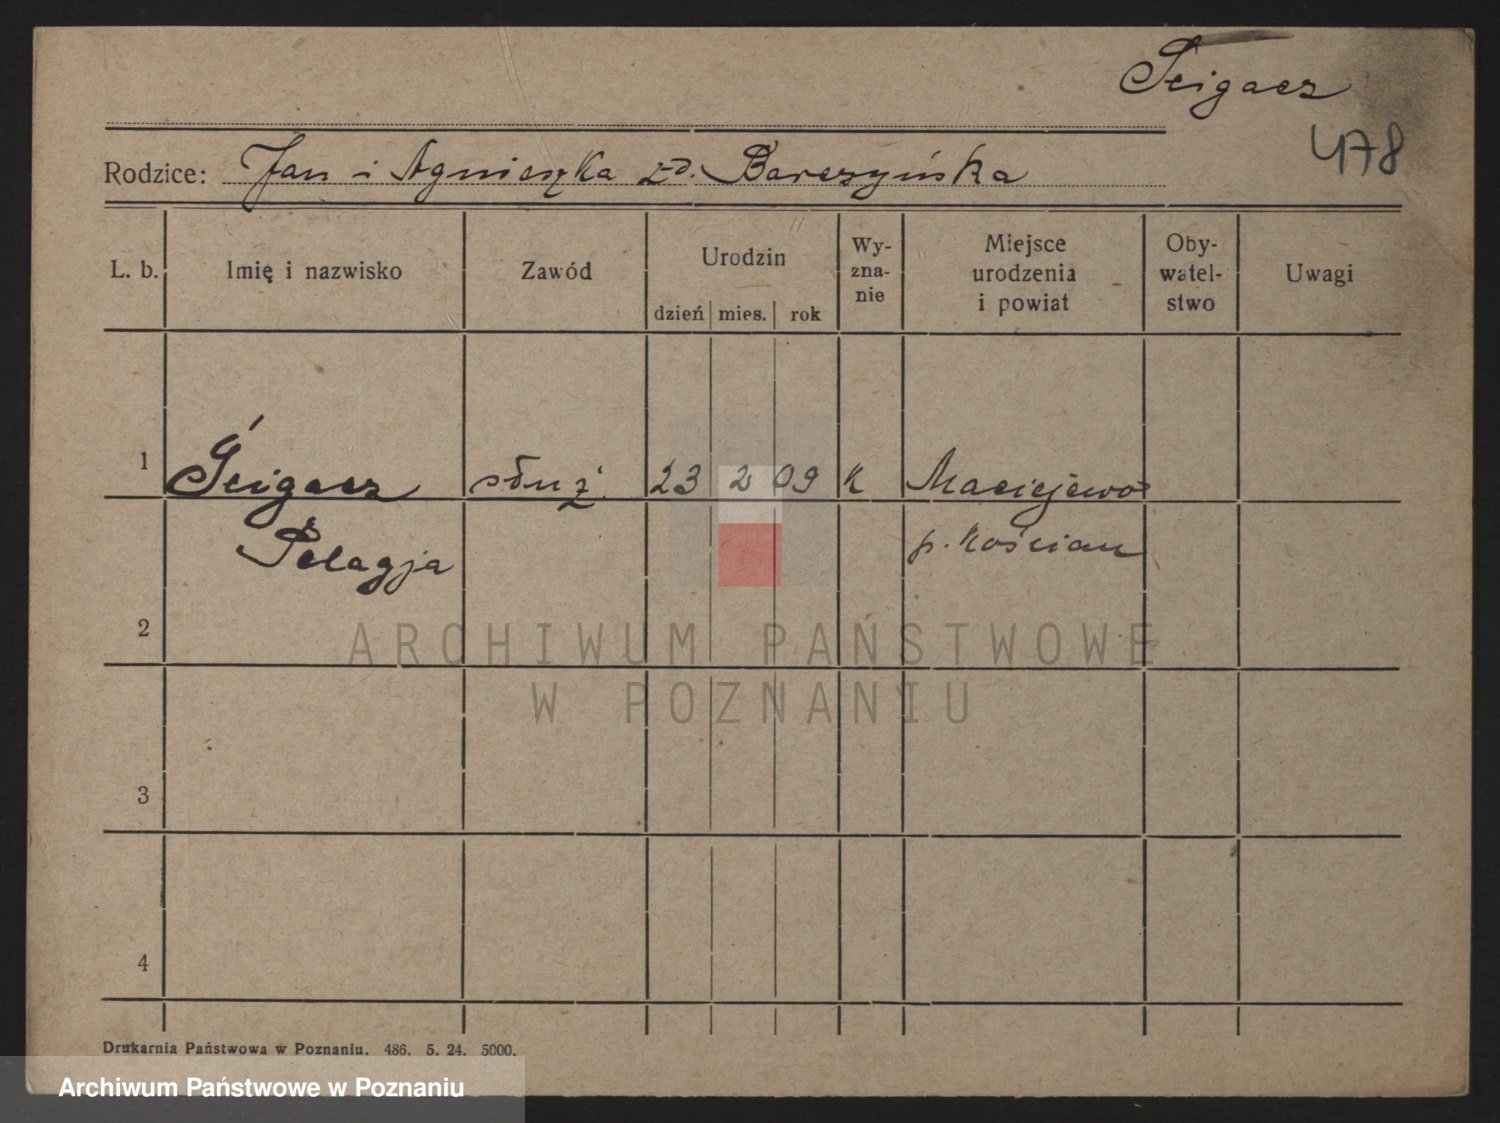 Ścigacz
478
Rodzice: Jan i Agnieszka zd. Barczyńska
L. b. Imię i nazwisko Zawód Urodzin dzień mies. rok Wy-zna-nie Miejsce urodzenia i powiat Oby-watel-stwo Uwagi
1 Ścigacz służ. 23 2 09 K Maciejewo
Pelagja p. Kościan
2
ARCHIWUM PAŃSTWOWE
W POZNANIU
3
4
Drukarnia Państwowa w Poznaniu. 486. 5. 24. 5000.
Archiwum Państwowe w Poznaniu